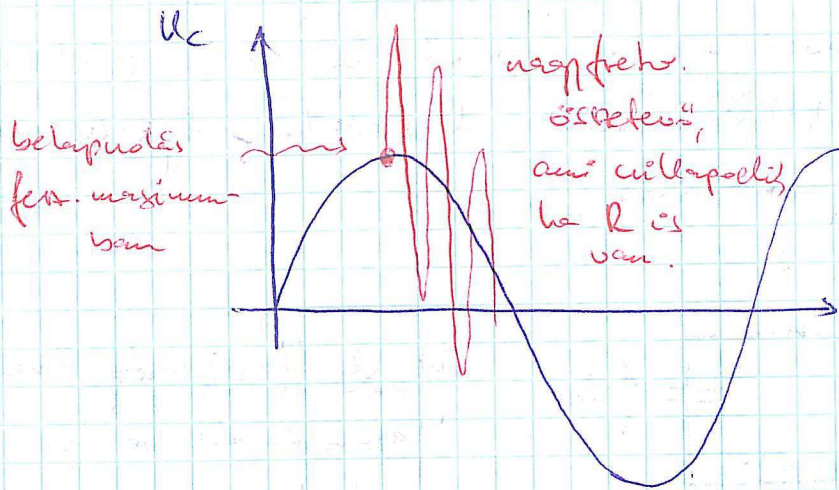 Uc
bekapcsolás
fesz. maximum-
ban
nagyfrekv.
összetevő,
ami csillapodik,
ha R is
van.